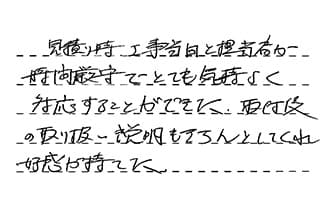 見積り時、工事当日と担当者が
時間厳守でとても気持よく
対応することができた、取付後
の取り扱い説明もきちんとしてくれ
好感が持てた。